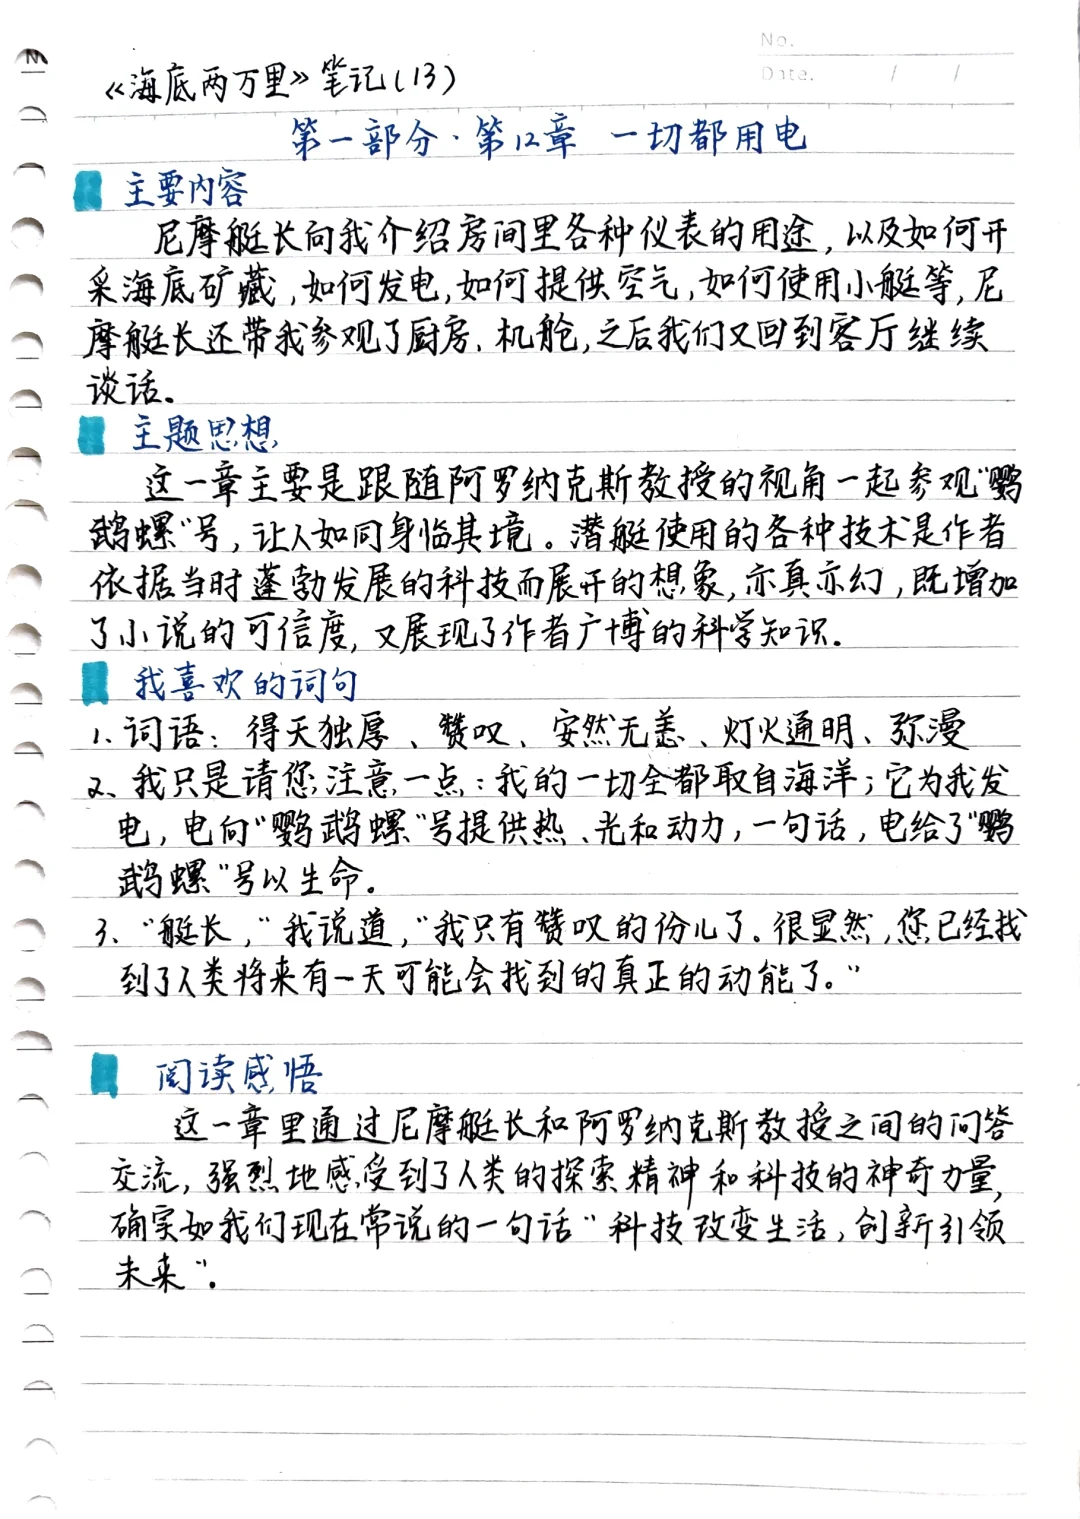 No.
Date. / /
《海底两万里》笔记(13)
第一部分·第12章 一切都用电
主要内容
尼摩艇长向我介绍房间里各种仪表的用途,以及如何开
采海底矿藏,如何发电,如何提供空气,如何使用小艇等,尼
摩艇长还带我参观了厨房、机舱,之后我们又回到客厅继续
谈话。
主题思想
这一章主要是跟随阿罗纳克斯教授的视角一起参观“鹦
鹉螺”号,让人如同身临其境。潜艇使用的各种技术是作者
依据当时蓬勃发展的科技而展开的想象,亦真亦幻,既增加
了小说的可信度,又展现了作者广博的科学知识.
我喜欢的词句
1、词语:得天独厚、赞叹、安然无恙、灯火通明、弥漫
2、我只是请您注意一点:我的一切全都取自海洋;它为我发
电,电向“鹦鹉螺”号提供热、光和动力,一句话,电给了“鹦
鹉螺”号以生命。
3、“艇长,”我说道,“我只有赞叹的份儿了。很显然,您已经找
到了人类将来有一天可能会找到的真正的动能了。”
阅读感悟
这一章里通过尼摩艇长和阿罗纳克斯教授之间的问答
交流,强烈地感受到了人类的探索精神和科技的神奇力量,
确实如我们现在常说的一句话“科技改变生活,创新引领
未来”。